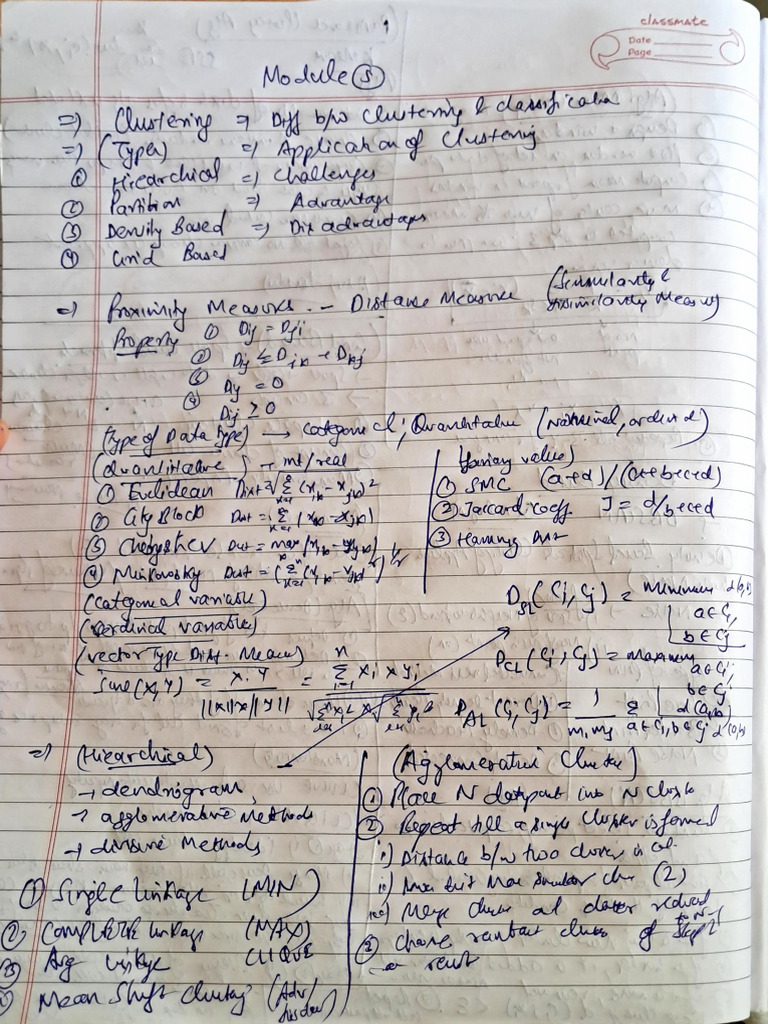 classmate
Date
Page
Module ⑤
⇒ Clustering ⇒ Diff b/w Clustering & classification
⇒ (Types) ⇒ Application of Clustering
① Hierarchical ⇒ Challenges
② Partition ⇒ Advantage
③ Density Based ⇒ Disadvantages
④ Grid Based
⇒ Proximity Measures - Distance Measure (Similarity & dissimilarity Measure)
Property ① Dij = Dji
② Dij ≤ Dik + Dkj
③ Dij = 0
④ Dij ≥ 0
(Type of Data Type) → categorical, Quantitative (Nominal, ordinal)
(Quantitative) → int/real
① Euclidean Dist = √Σ(xik - xjk)²
② City Block Dist = Σ|xik - xjk|
③ Chebyshev Dist = max|xik - xjk|
④ Minkowsky Dist = (Σ(xik - xjk)^r)^1/r
(Categorical variable)
(ordinal variable)
(Vector Type Dist. Measure)
(X,Y) = X.Y / ||X||x||Y|| = Σ xi x yi / √Σxi² x √Σyi²
(Binary value)
① SMC (a+d)/(a+b+c+d)
② Jaccard coeff. J = d/b+c+d
③ Hamming Dist
DSL(Ci, Cj) = Minimum d(a,b) a∈Ci, b∈Cj
DCL(Ci, Cj) = maximum a∈Ci, b∈Cj d(a,b)
DAL(Ci, Cj) = 1/mi,mj Σ a∈Ci, b∈Cj d(a,b)
⇒ (Hierarchical)
→ dendrogram,
→ agglomerative Methods
→ divisive Methods
① Single linkage (MIN)
② COMPLETE linkage (MAX)
③ Avg linkage CLIQUE
Mean Shift Clusting (Adv/
(Agglomerative Cluster)
① Place N datapoint into N Cluster
② Repeat till a single Cluster is formed
i) Distance b/w two cluster is
ii) (2)
iii) Merge cluster reduced to N-1
③ of step 2